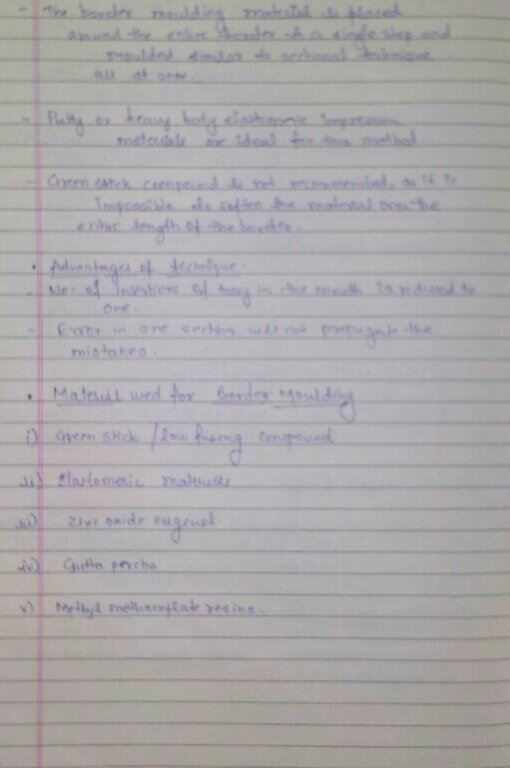 - The border moulding material is placed
around the entire border in a single step and
moulded similar to sectional technique
all at once.
- Putty or heavy body elastomeric impression
materials are ideal for this method
- Green stick compound is not recommended, as it is
impossible to soften the material over the
entire length of the border.
• Advantages of technique
- No. of insertions of tray in the mouth is reduced to
one.
- Error in one section will not propagate the
mistakes.
• Material used for Border Moulding
i) Green stick / low fusing compound
ii) Elastomeric materials
iii) Zinc oxide eugenol.
iv) Gutta percha
v) Methyl methacrylate resins.